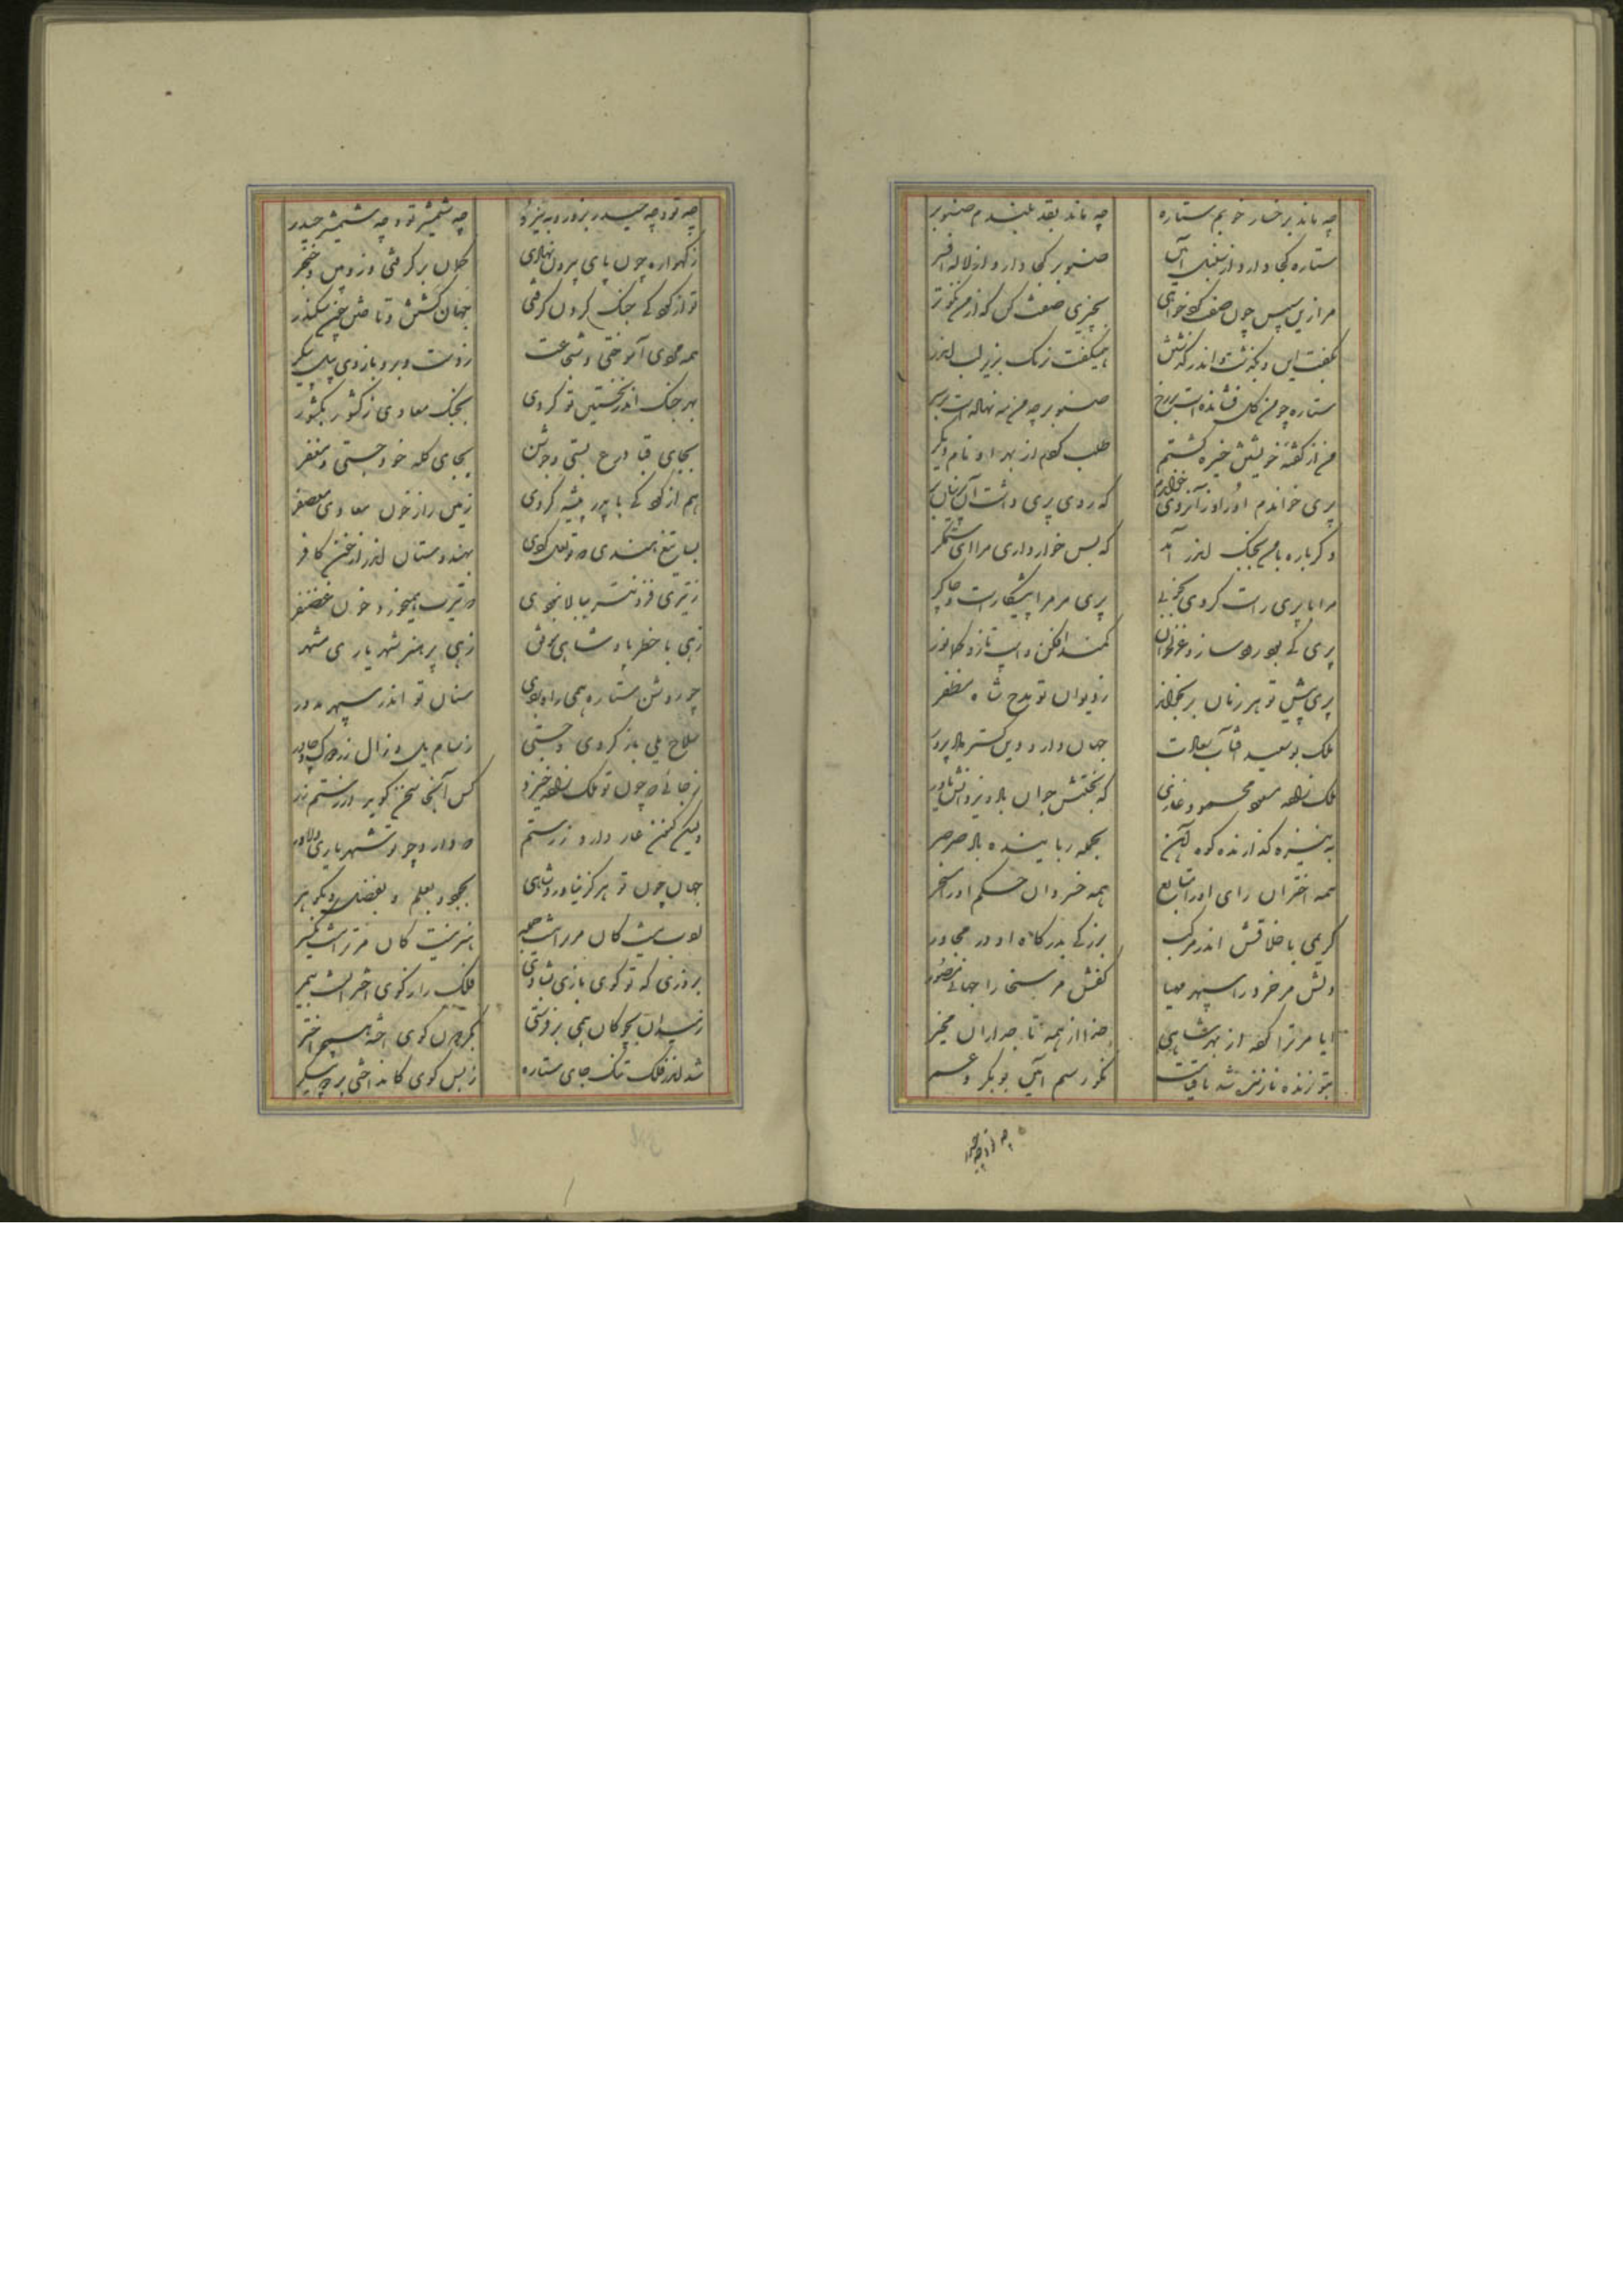 چه ماند برخسار خوبم ستاره چه ماند بقد بلندم صنوبر
ستاره کجا دارد از سنبل آذین صنوبر کجا دارد از لاله افسر
مرا زین سپس چون صفت کرد خواهی بچیزی صفت کن که از من نکوتر
بگفت این و بگذشت و اندر گذشتن همیگفت نرمک بزیر لب اندر
ستاره چو من گل فشانده است بر رخ صنوبر چو من مه نهاده است بر سر
من از گفته خویشتن خیره گشتم طلب کردم از بهر او نام دیگر
پری خواندم او را و زانروی خواندم که روی پری داشت آن
دگر باره با من بجنگ اندر آمد که بس خوار داری مرا ای ستمگر
مرا با پری راست کردی بخوبی پری مر مرا پیشکار است و چاکر
پری کی بود رود ساز و غزلخوان کمند افکن و اسب تاز و کمان ور
پری پیش تو هر زمان برنخواند ز دیوان تو مدح شاه مظفر
ملک بوسعید آفتاب سعادت جهاندار و دین گستر و داد پرور
ملک زاده مسعود محمود غازی که بختش جوان باد و یزدانش یاور
به نیزه گذارنده کوه آهن بحمله رباینده باد صرصر
همه اختران رای او را متابع همه خسروان حکم او را مسخر
کریمی باخلاقش اندر مرکب بزرگی بدرگاه او در مجاور
دلش مر خرد را سپهر مهیا کفش مر سخا را جهانی مصور
ایا مر ترا کرده از بهر شاهی خدا از همه تاجداران مخیر
بتو زنده و تازه شد تا قیامت نکو رسم و آیین بوبکر و عمر
چه تو و چه حیدر
چه تو و چه حیدر بزور و به نیرو چه شمشیر تو و چه شمشیر حیدر
ز گهواره چون پای بیرون نهادی کمان برگرفتی و زوبین و خنجر
تو از کودکی جنگ کردن گرفتی جهان
همه مردی آموختی و شجاعت ز دست و بر و بازوی پیل پیکر
بهر جنگ اندر نخستین تو کردی بجنگ معادی ز کشور بکشور
بجای قبا درع بستی و جوشن بجای کله خود جستی و مغفر
هم از کودکی با پدر پیشه کردی زمین را ز خون معادی معصفر
بسا تیغ هندی که تو لعل کردی بهندوستان اندر از خون کافر
ز تیری فزونتر ببالا نبودی که تیرت همیخورد خون غضنفر
زهی با خطر پادشاهی زهی پر هنر شهریاری مشهر
چو روشن ستاره همی راه بودی سنان تو اندر سپهر مدور
سلاح یلی باز کردی و جستی ز سام یل و زال زر
ز جایی که چون تو ملک زاده خیزد کس آنجا سخن گوید از رستم زر
ولیکن عار دارد ز رستم که دارد چو تو شهریاری دلاور
جهان چون تو هرگز نیاورد شاهی بجود و بعلم و بفضل و بگوهر
ادب نیست کان مر ترا نیست جمله هنر نیست کان مر ترا نیست یکسر
بروزی که تو گوی بازی بشادی فلک را ز گوی اختر است بیمر
ز میدان بچوگان همی بر فرستی بگردون گوی
شد اندر فلک تنگ جای ستاره ز بس گوی کانداختی بر